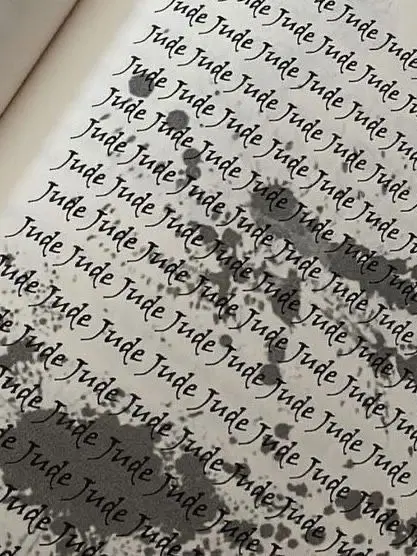 Jude
Jude Jude Jude
Jude Jude Jude Jude Jude
Jude Jude Jude Jude Jude Jude
Jude Jude Jude Jude Jude Jude
Jude Jude Jude Jude Jude Jude Jude
Jude Jude Jude Jude Jude Jude Jude
Jude Jude Jude Jude Jude Jude Jude Jude
Jude Jude Jude Jude Jude Jude Jude Jude
Jude Jude Jude Jude Jude Jude Jude Jude
Jude Jude Jude Jude Jude Jude Jude Jude
Jude Jude Jude Jude Jude Jude Jude
Jude Jude Jude Jude Jude Jude
Jude Jude Jude Jude Jude
Jude Jude Jude Jude
Jude Jude